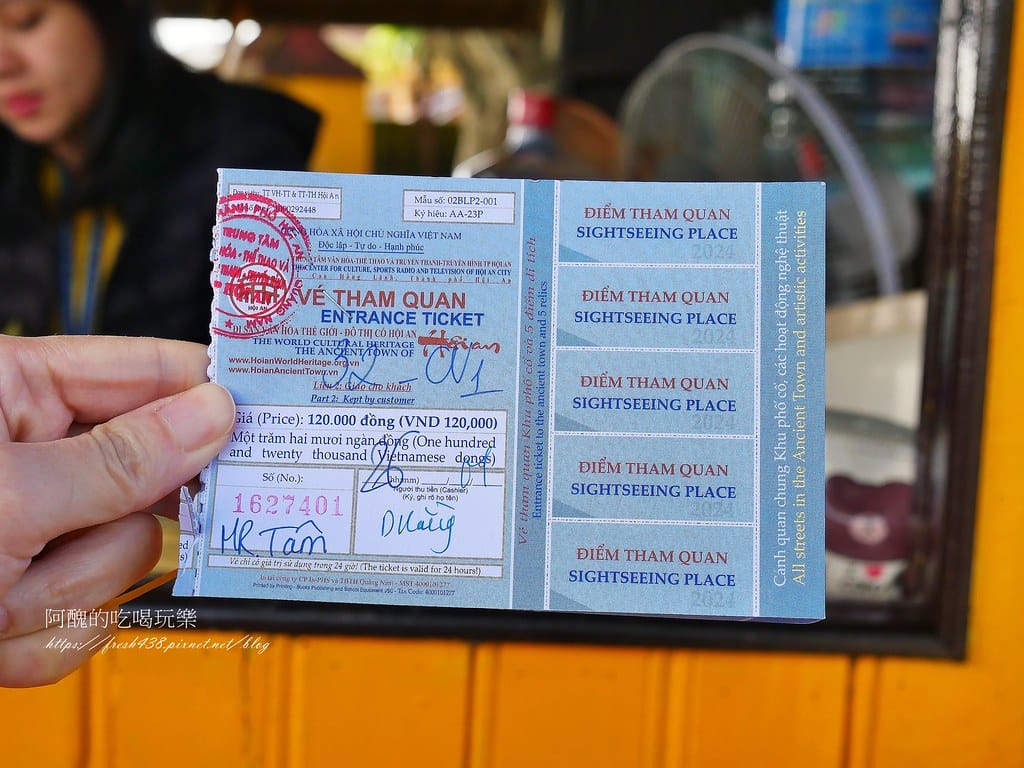 Đơn vị: TT VH-TT & TT-TH Hội An
Mẫu số: 02BLP2-001
Ký hiệu: AA-23P
HÒA XÃ HỘI CHỦ NGHĨA VIỆT NAM
Độc lập - Tự do - Hạnh phúc
TÂM VĂN HÓA-THỂ THAO VÀ TRUYỀN THANH-TRUYỀN HÌNH TP HỘI AN
THE CENTER FOR CULTURE, SPORTS RADIO AND TELEVISION OF HOI AN CITY
TRUNG TÂM
HÓA - THỂ THAO VÀ
HOI AN
VÉ THAM QUAN
ENTRANCE TICKET
DI SẢN VĂN HÓA THẾ GIỚI - ĐÔ THỊ CỔ HỘI AN
THE WORLD CULTURAL HERITAGE
THE ANCIENT TOWN OF
Hoian
www.HoianWorldHeritage.org.vn
www.HoianAncientTown.vn
Liên 2: Giao cho khách
Part 2: Kept by customer
Giá (Price): 120.000 đồng (VND 120,000)
Một trăm hai mươi ngàn đồng (One hundred
and twenty thousand Vietnamese dongs)
Số (No.):
1627401
MR. Tâm
Người thu tiền (Cashier)
(Ký, ghi rõ họ tên)
Vé chỉ có giá trị sử dụng trong 24 giờ! (The ticket is valid for 24 hours!)
In tại công ty CP In-PHS và TBTH Quảng Nam - MST 4000101277
Printed by Printing - Books Publishing and School Equipment JSC - Tax Code: 4000101277
Vé tham quan Khu phố cổ và 5 điểm di tích
Entrance ticket to the ancient town and 5 relics
ĐIỂM THAM QUAN
SIGHTSEEING PLACE
2024
ĐIỂM THAM QUAN
SIGHTSEEING PLACE
2024
ĐIỂM THAM QUAN
SIGHTSEEING PLACE
2024
ĐIỂM THAM QUAN
SIGHTSEEING PLACE
2024
ĐIỂM THAM QUAN
SIGHTSEEING PLACE
2024
Cảnh quan chung Khu phố cổ, các hoạt động nghệ thuật
All streets in the Ancient Town and artistic activities
阿醜的吃喝玩樂
https://fresh438.pixnet.net/blog